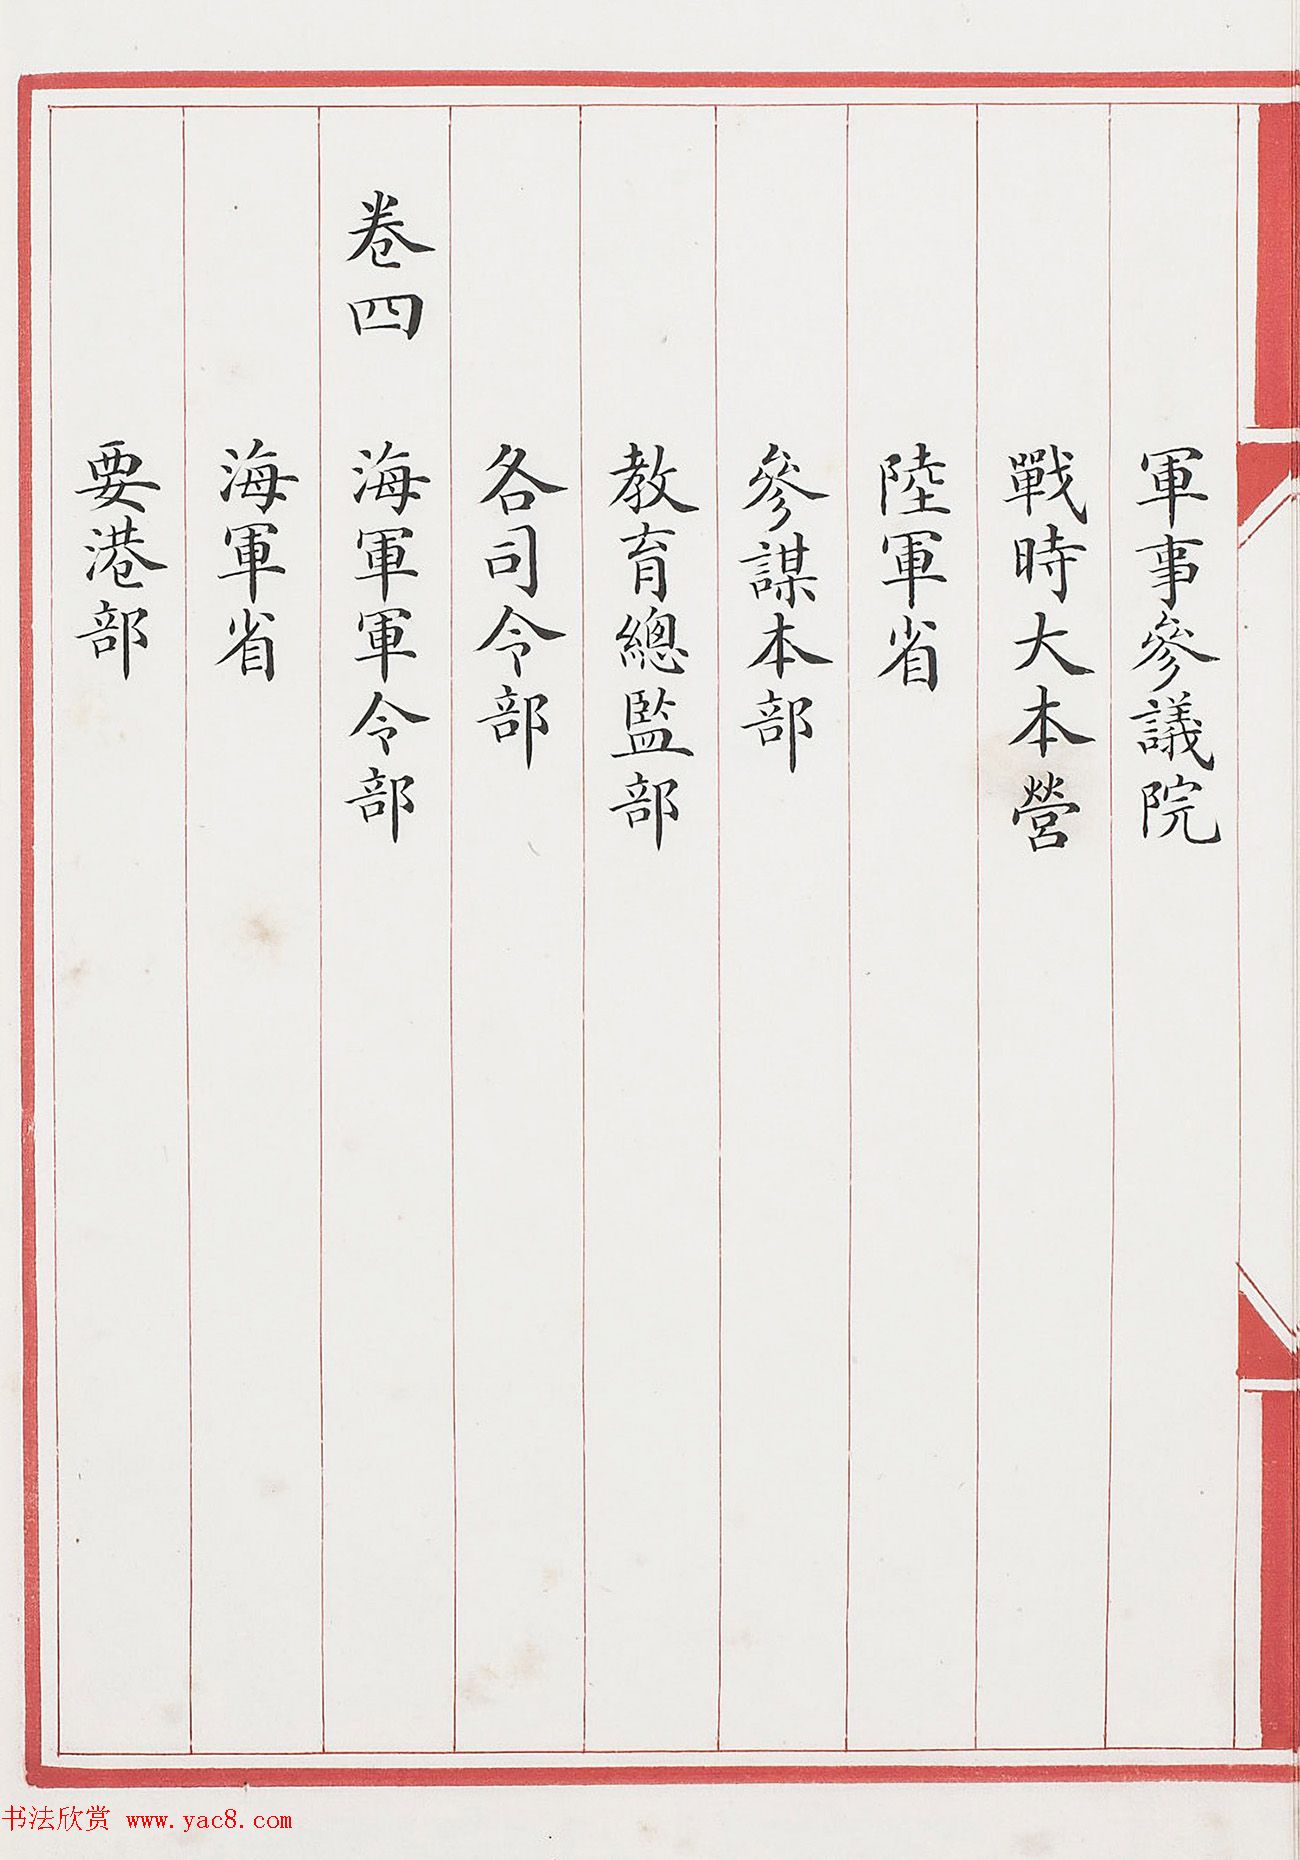 軍事參議院
戰時大本營
陸軍省
參謀本部
教育總監部
各司令部
卷四　海軍軍令部
海軍省
要港部
书法欣赏 www.yac8.com